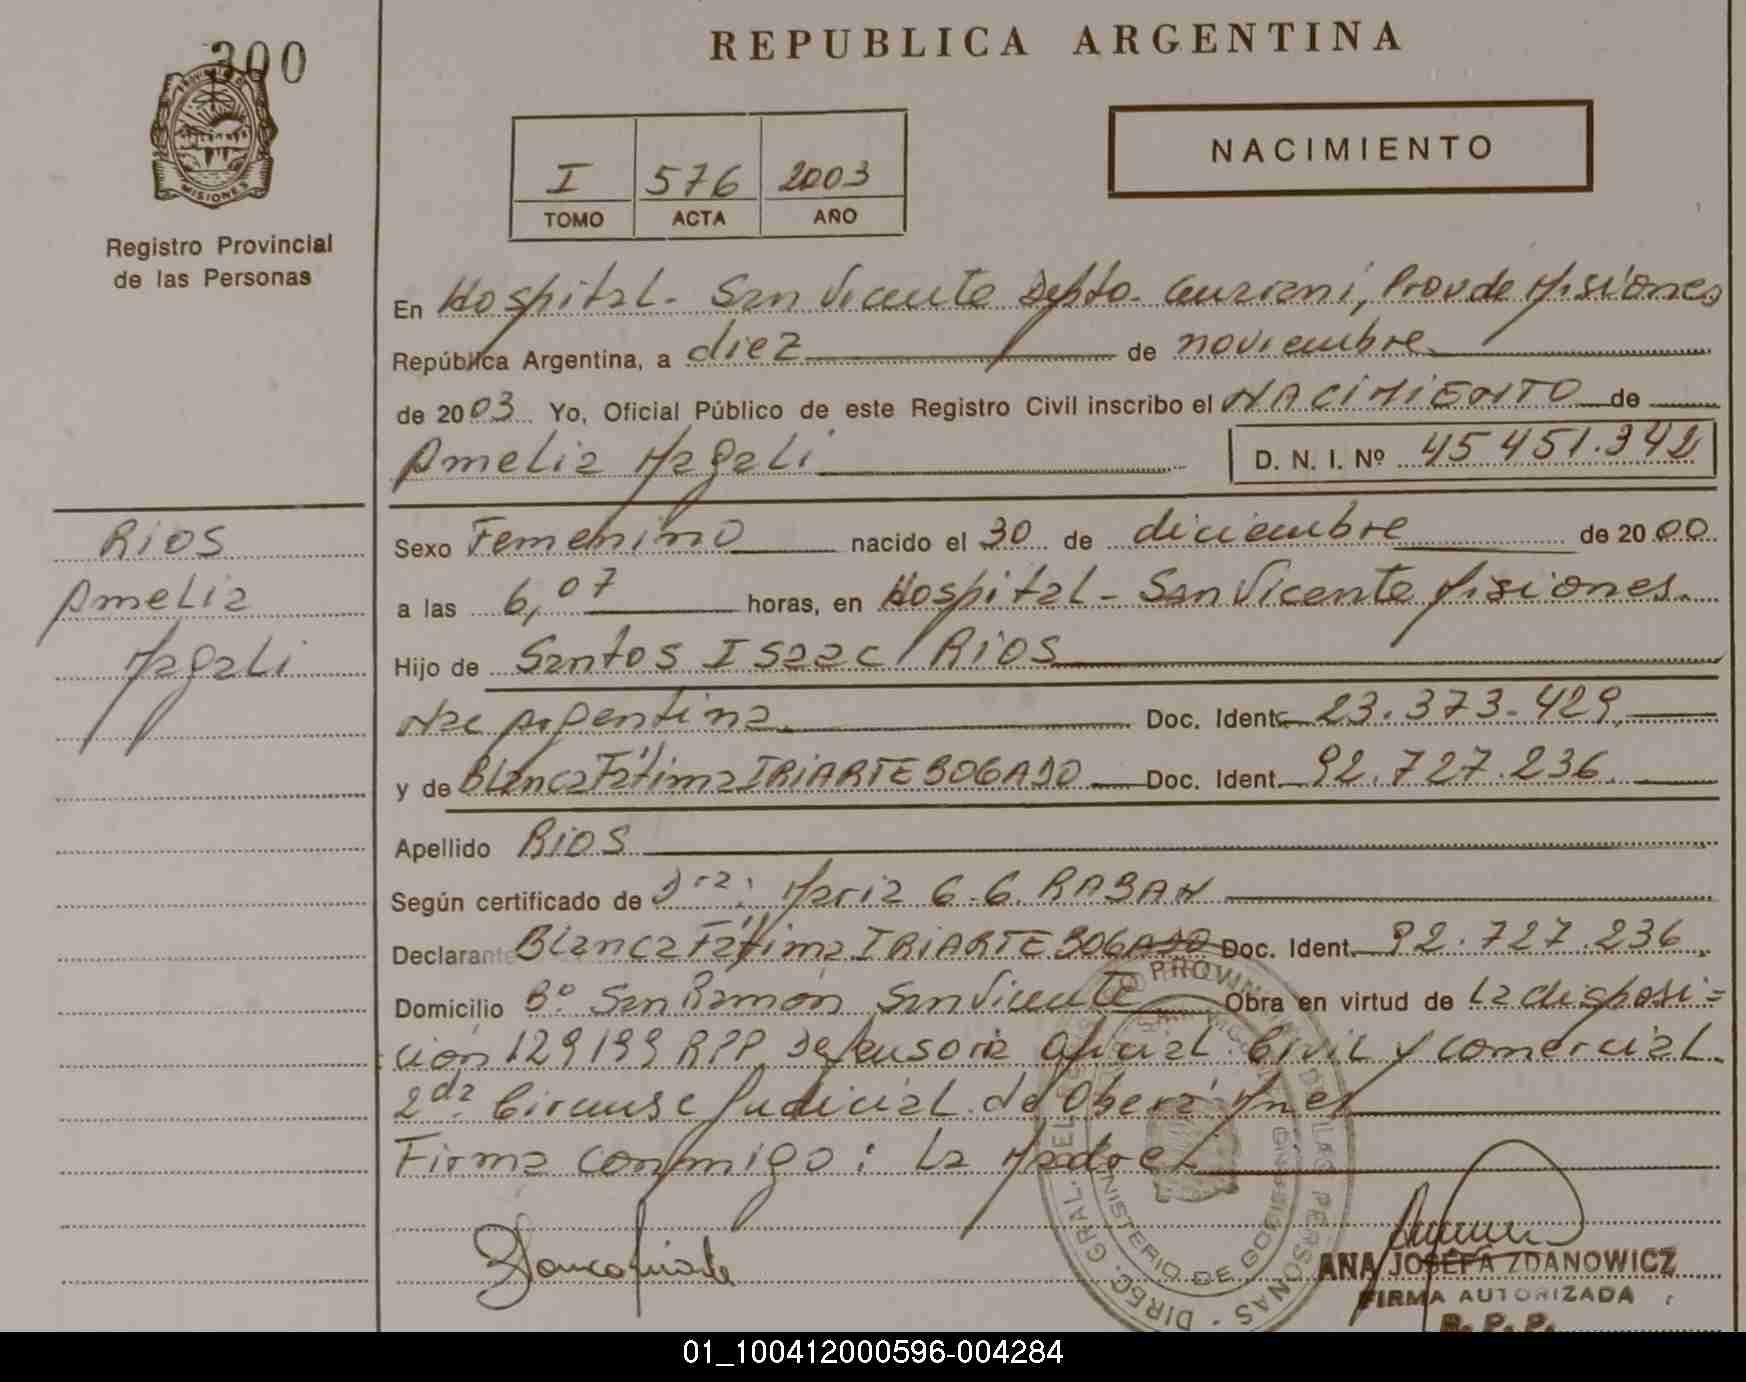 300
PROVINCIA DE
MISIONES
Registro Provincial
de las Personas
REPUBLICA ARGENTINA
I 576 2003
TOMO ACTA AÑO
NACIMIENTO
En Hospital - San Vicente Depto. Guarani, Prov de Misiones
República Argentina, a diez de noviembre
de 2003 Yo, Oficial Público de este Registro Civil inscribo el NACIMIENTO de
Amelia Magali D. N. I. Nº 45 451.342
RIOS
Amelia
Magali
Sexo Femenino nacido el 30 de diciembre de 2000
a las 6,07 horas, en Hospital - San Vicente Misiones.
Hijo de Santos Isaac RIOS
Nac Argentina Doc. Ident. 23.373.429
y de Blanca Fátima IRIARTE BOGADO Doc. Ident. 92.727.236
Apellido RIOS
Según certificado de Dra: Maria G. G. RABAN
Declarante Blanca Fátima IRIARTE BOGADO Doc. Ident. 92.727.236
Domicilio Bº San Ramón San Vicente Obra en virtud de La disposi=
ción 129/99 RPP. Defensoria oficial Civil y Comercial
2da. Circunsc Judicial de Oberá Mnes
Firma conmigo: La Madre
DIREC. GRAL. DEL PROVIN DE LAS PERSONAS
MINISTERIO DE GOBIERNO
ANA JOSEFA ZDANOWICZ
FIRMA AUTORIZADA
R. P. P.
01_100412000596-004284